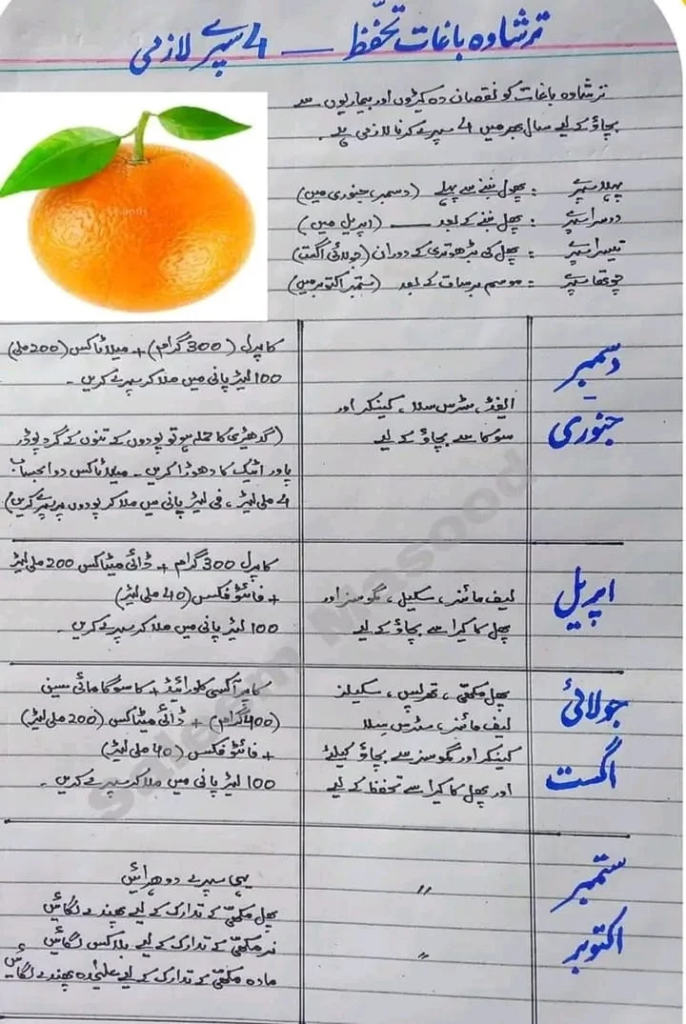 ترشاوہ باغات تحفّظ — 4 سپرے لازمی
ترشاوہ باغات کو نقصان دہ کیڑوں اور بیماریوں سے
بچاؤ کے لیے سال بھر میں 4 سپرے کرنا لازمی ہے۔
پہلا سپرے : پھول بننے سے پہلے (دسمبر، جنوری میں)
دوسرا سپرے : پھل بننے کے بعد — (اپریل میں)
تیسرا سپرے : پھل کی بڑھوتری کے دوران (جولائی اگست)
چوتھا سپرے : موسم برسات کے بعد (ستمبر اکتوبر میں)
دسمبر
جنوری
ایفڈ، سٹرس سلا، کینکر اور
سوکا سے بچاؤ کے لیے
کاپرل (300 گرام) + میلاٹاکس (200 ملی)
100 لیٹر پانی میں ملا کر سپرے کریں۔
(گدھیڑی کا حملہ ہو تو پودوں کے تنوں کے گرد پوڈر
پاور اٹیک کا دھوڑا کریں۔ میلاٹاکس دوا بحساب
4 ملی لیٹر، فی لیٹر پانی میں ملا کر پودوں پر سپرے کریں)
اپریل
لیف مائنر، سکیل، گموسز اور
پھل کا کیرا سے بچاؤ کے لیے
کاپرل 300 گرام + ڈائی میٹاکس 200 ملی لیٹر
+ فائٹو فکس (40 ملی لیٹر)
100 لیٹر پانی میں ملا کر سپرے کریں۔
جولائی
اگست
پھل مکھی، تھرپس، سکیلز
لیف مائنر، سٹرس سلا
کینکر اور گموسز سے بچاؤ کیلئے
اور پھل کا کیرا سے تحفظ کے لیے
کاپر آکسی کلورائیڈ + کاسوگامائی سین
(400 گرام) + ڈائی میٹاکس (200 ملی لیٹر)
+ فائٹو فکس (40 ملی لیٹر)
100 لیٹر پانی میں ملا کر سپرے کریں۔
ستمبر
اکتوبر
〃
〃
یہی سپرے دوھرائیں
پھل مکھی کے تدارک کے لیے پھندے لگائیں
نر مکھی کے تدارک کے لیے بلاکس لگائیں
مادہ مکھی کے تدارک کے لیے علیحدہ پھندے لگائیں
Saleem Masood